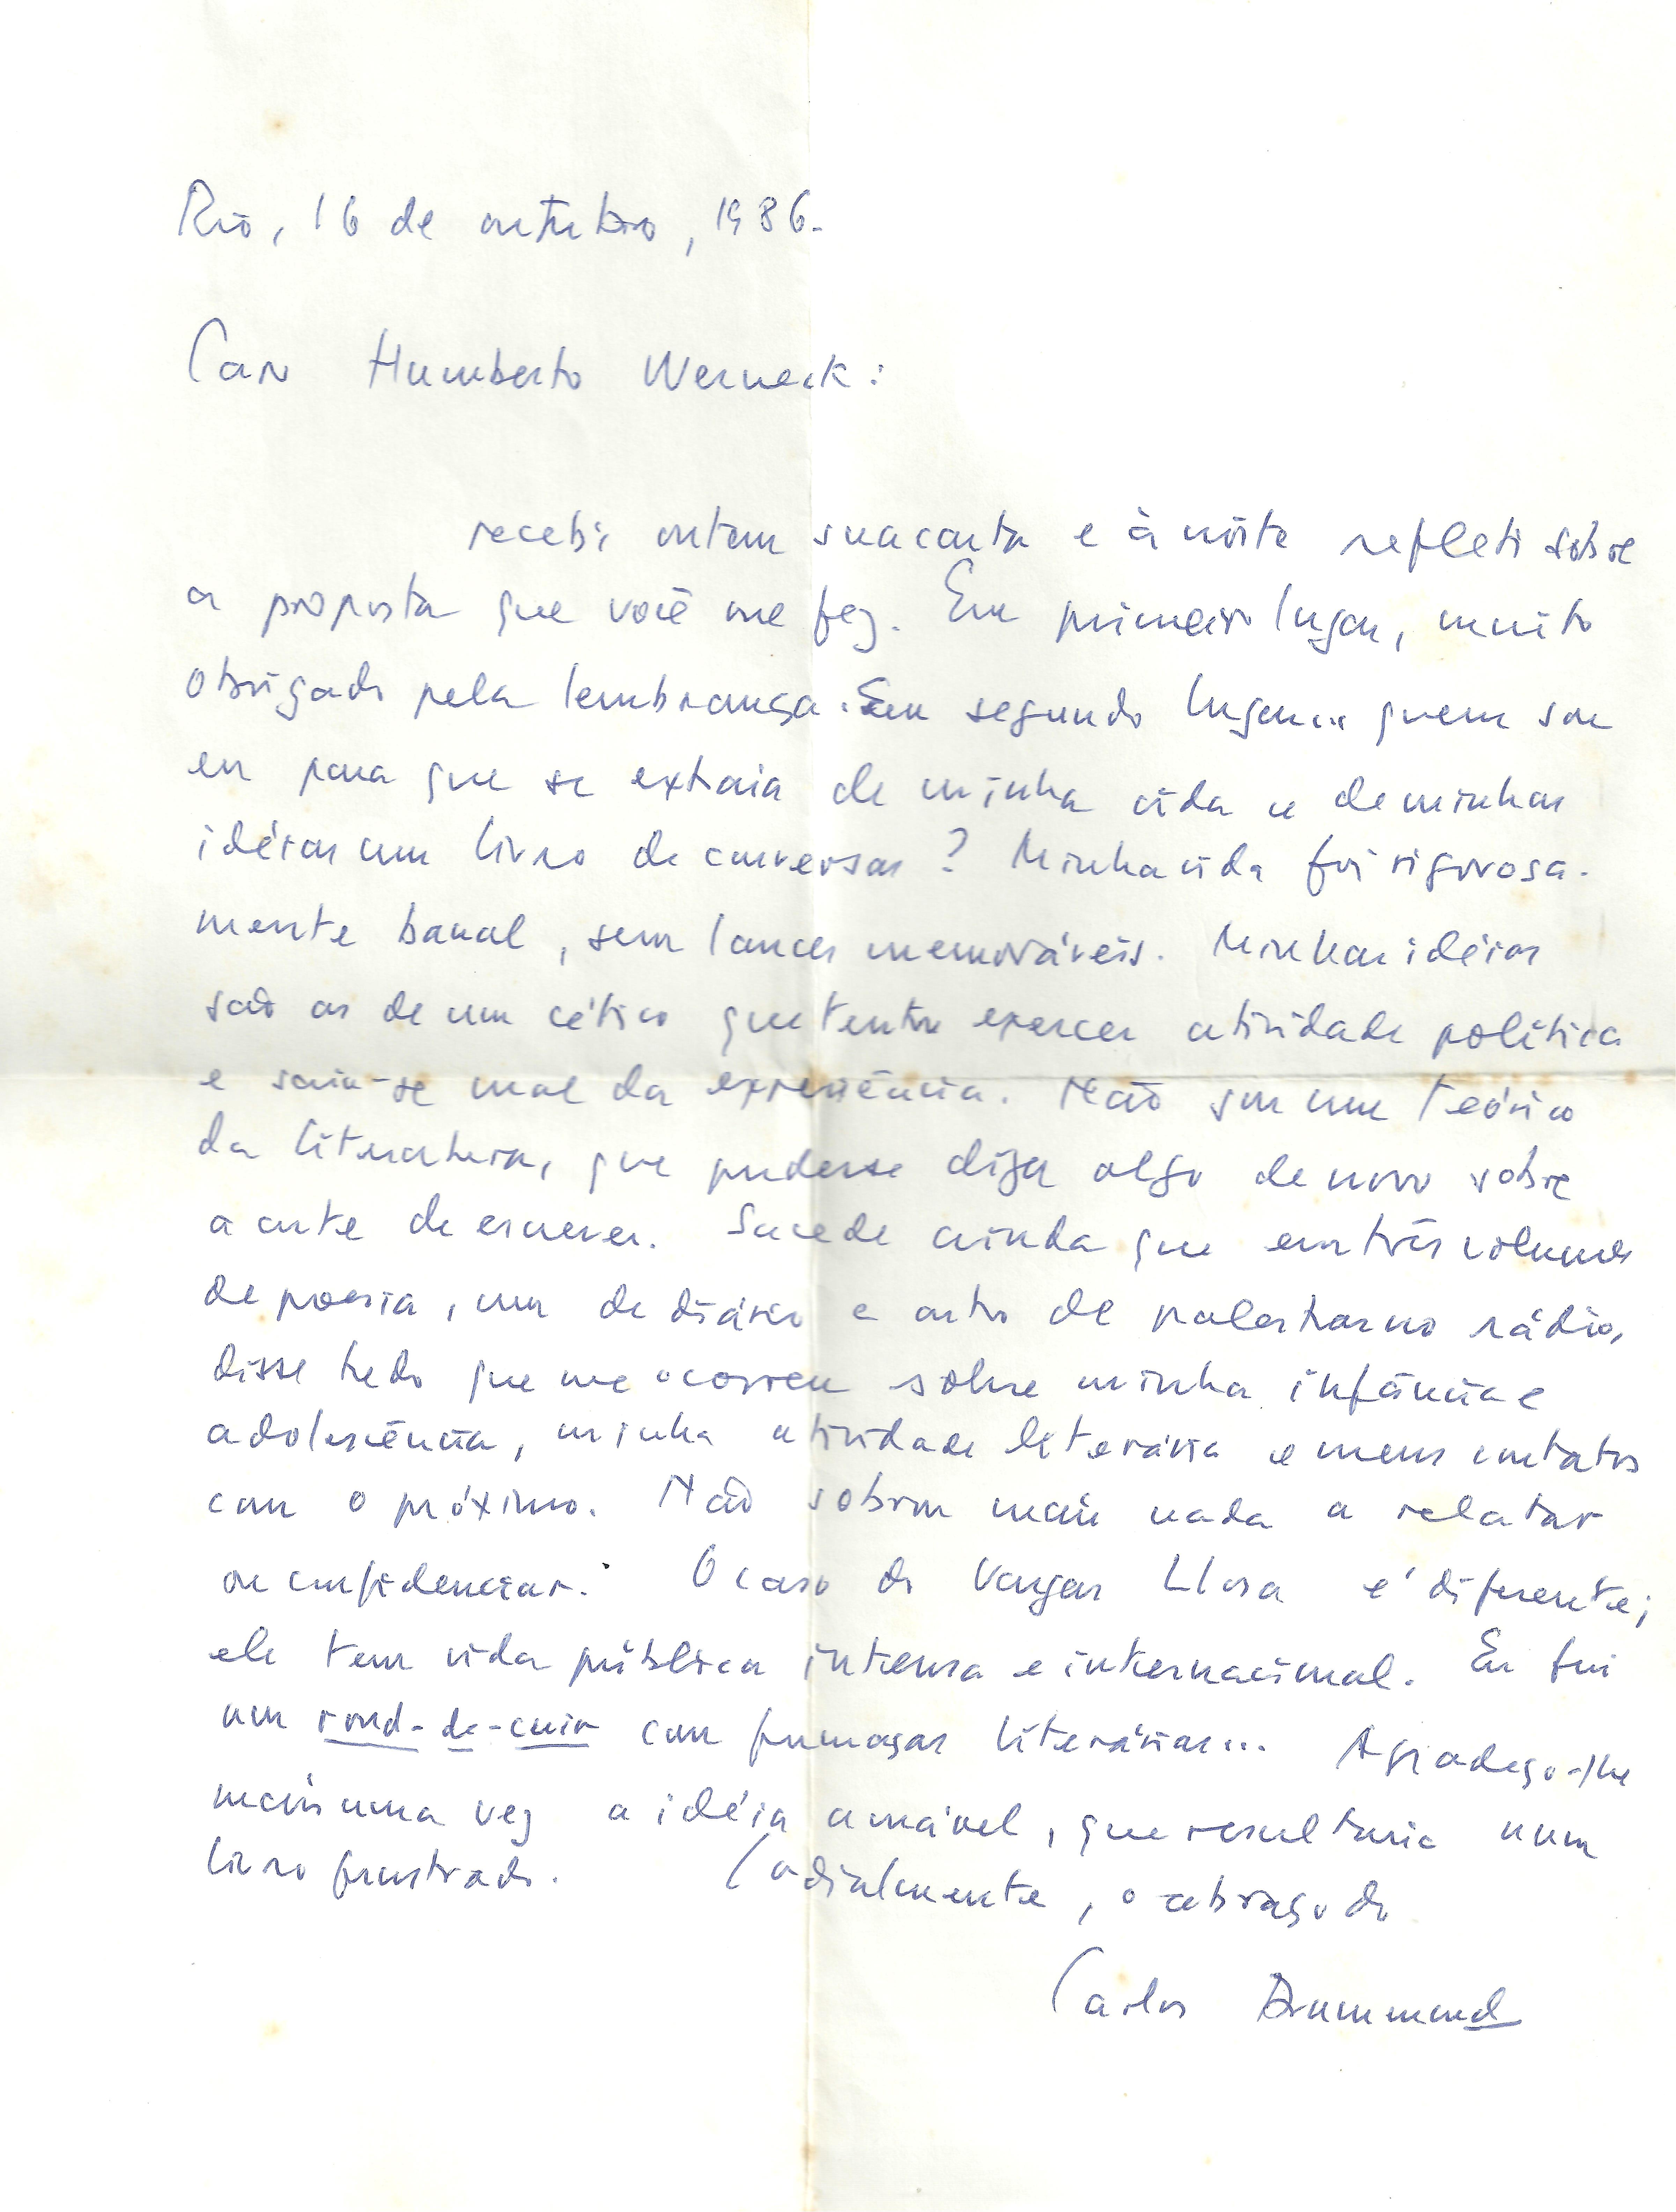 Rio, 16 de outubro, 1986.
Caro Humberto Werneck:
recebi ontem sua carta e à noite refleti sobre
a proposta que você me fez. Em primeiro lugar, muito
obrigado pela lembrança. Em segundo lugar... quem sou
eu para que se extraia de minha vida e de minhas
idéias um livro de conversas? Minha vida foi rigorosa-
mente banal, sem lances memoráveis. Minhas idéias
são as de um cético que tentou exercer atividade política
e saiu-se mal da experiência. Não sou um teórico
da literatura, que pudesse dizer algo de novo sobre
a arte de escrever. Sucede ainda que em três volumes
de poesia, um de diário e outro de palestras no rádio,
disse tudo que me ocorreu sobre minha infância e
adolescência, minha atividade literária e meus contatos
com o próximo. Não sobrou mais nada a relatar
ou confidenciar. O caso do Vargas Llosa é diferente;
ele tem vida pública intensa e internacional. Eu fui
um rond-de-cuir com fumaças literárias... Agradeço-lhe
mais uma vez a idéia amável, que resultaria num
livro frustrado. Cordialmente, o abraço do
Carlos Drummond